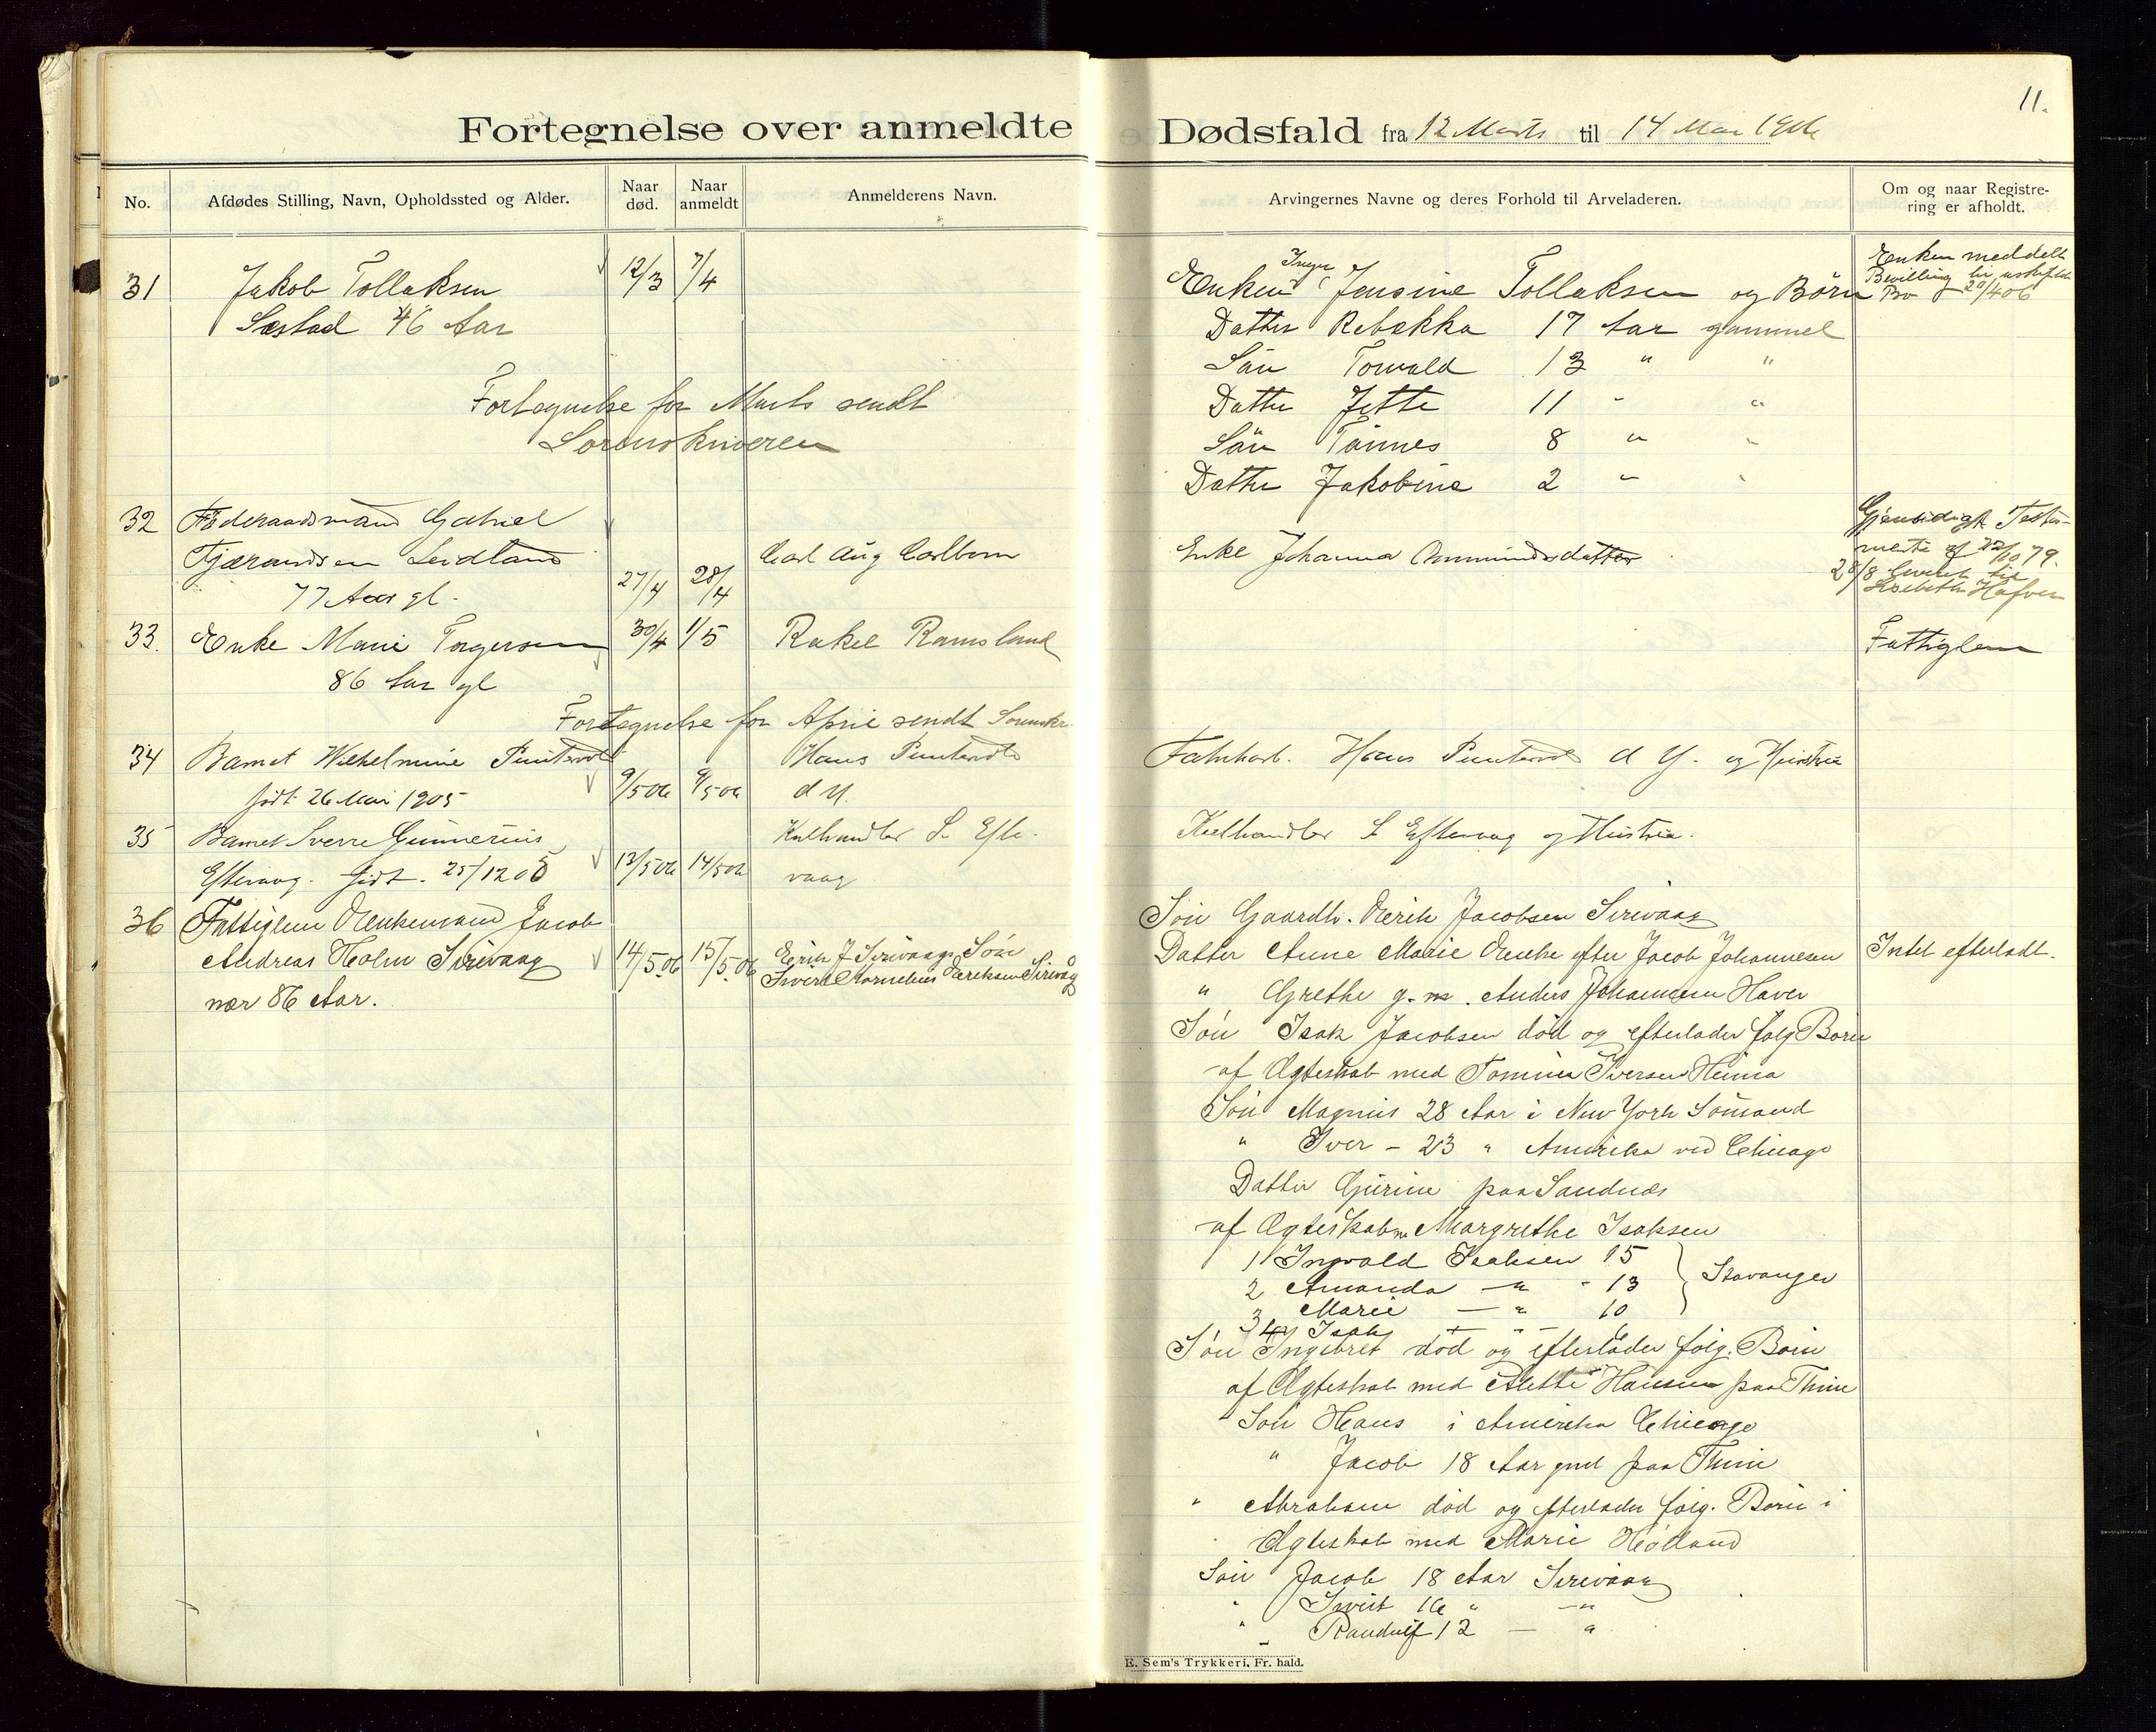 11.
Fortegnelse over anmeldte Dødsfald fra 12 Marts til 14 Mai 1906
No.
Afdødes Stilling, Navn, Opholdssted og Alder.
Naar død.
Naar anmeldt
Anmelderens Navn.
Arvingernes Navne og deres Forhold til Arveladeren.
Om og naar Registrering er afholdt.
31 Jakob Tollaksen 12/3 7/4
Sæstad 46 Aar
Enken Inger Jensine Tollaksen og Börn
Datter Rebekka 17 Aar gammel
Sön Torvald 13 " "
Datter Jette 11 " "
Sön Tönnes 8 " "
Datter Jakobine 2 " "
Enken meddelt
Bevilling til uskiftet
Bo 20/4 06
Fortegnelse for Marts sendt
Sorenskriveren
32 Föderaadsmand Gabriel
Tjærandsen Leidland
77 Aar gl.
27/4 28/4 Carl Aug Carlbom
Enke Johanna Ommundsdatter
Gjensidigt Testa-
mente af 22/10 79.
28/8 leveret til
Lisebeth Hafven
33. Enke Marie Torgersen 30/4 1/5 Rakel Ramsland
86 Aar gl
Fattiglem
Fortegnelse for April sendt Sorenskr.
34 Barnet Wilhelmine Puntervold
født 26 Mai 1905
9/5 06 9/5 06
Hans Puntervold
d Y.
Fabrikarb. Hans Puntervold d Y. og Hustru
35 Barnet Sverre Gunnerius
Eftevaag. født. 25/12 05
13/5 06 14/5 06
Kulhandler S. Efte-
vaag
Kulhandler S Eftevaag og Hustru.
36 Fattiglem Enkemand Jacob
Andreas Holm Sirevaag
nær 86 Aar.
14/5.06 15/5.06
Erik J Sirevaag Søn
Sivert Kornelius Eriksen Sirevåg
Søn Gaardbr. Erik Jacobsen Sirevaag
Datter Anne Marie Enke efter Jacob Johannesen
Intet efterladt.
" Grethe g. m. Anders Johannesen Haver
Søn Isak Jacobsen död og efterlader følg Børn
af Ægteskab med Tomine Iversen Heima
Søn Magnus 28 Aar i New York Sömand
" Iver - 23 " Amerika ved Chicago
Datter Gurine paa Sandnæs
af Ægteskab m Margrethe Isaksen
1 Ingvald Isaksen 15
2 Amanda — " - 13
3 Marie — " 10
4 Isak — "
Stavanger
Søn Ingebret död og efterlader følg. Børn
af Ægteskab med Alette Hansen paa Thime
Søn Hans i Amerika Chicago
" Jacob 18 Aar gml paa Thime
" Abraham död og efterlader følg. Børn i
Ægteskab med Marie Hölland
Søn Jacob 18 Aar Sirevaag
" Sivert 16 " — "
" Randulf 12 — "
E. Sem's Trykkeri, Fr. hald.